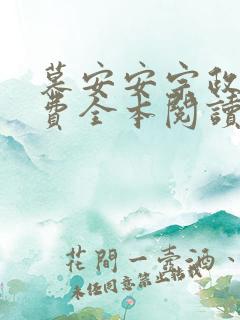 慕安安宗政
費全本閱讀
花間一壼酒、
未經同意禁止轉載